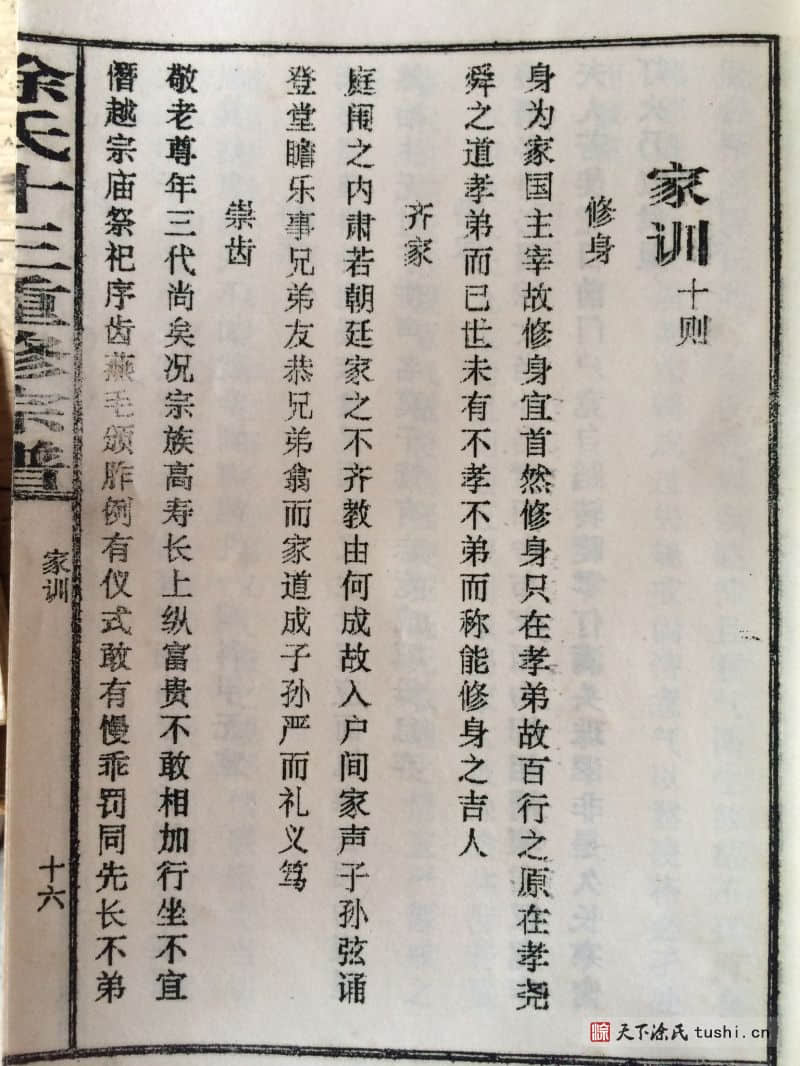 家训十则
修身
身为家国主宰故修身宜首然修身只在孝弟故百行之原在孝尧
舜之道孝弟而已世未有不孝不弟而称能修身之吉人
齐家
庭闱之内肃若朝廷家之不齐教由何成故入户间家声子孙弦诵
登堂瞻乐事兄弟友恭兄弟翕而家道成子孙严而礼义笃
崇齿
敬老尊年三代尚矣况宗族高寿长上纵富贵不敢相加行坐不宜
僭越宗庙祭祀序齿燕毛颁胙例有仪式敢有慢乖罚同先长不弟
涂氏十三重修宗谱
家训
十六
天下涂氏 tushi.cn